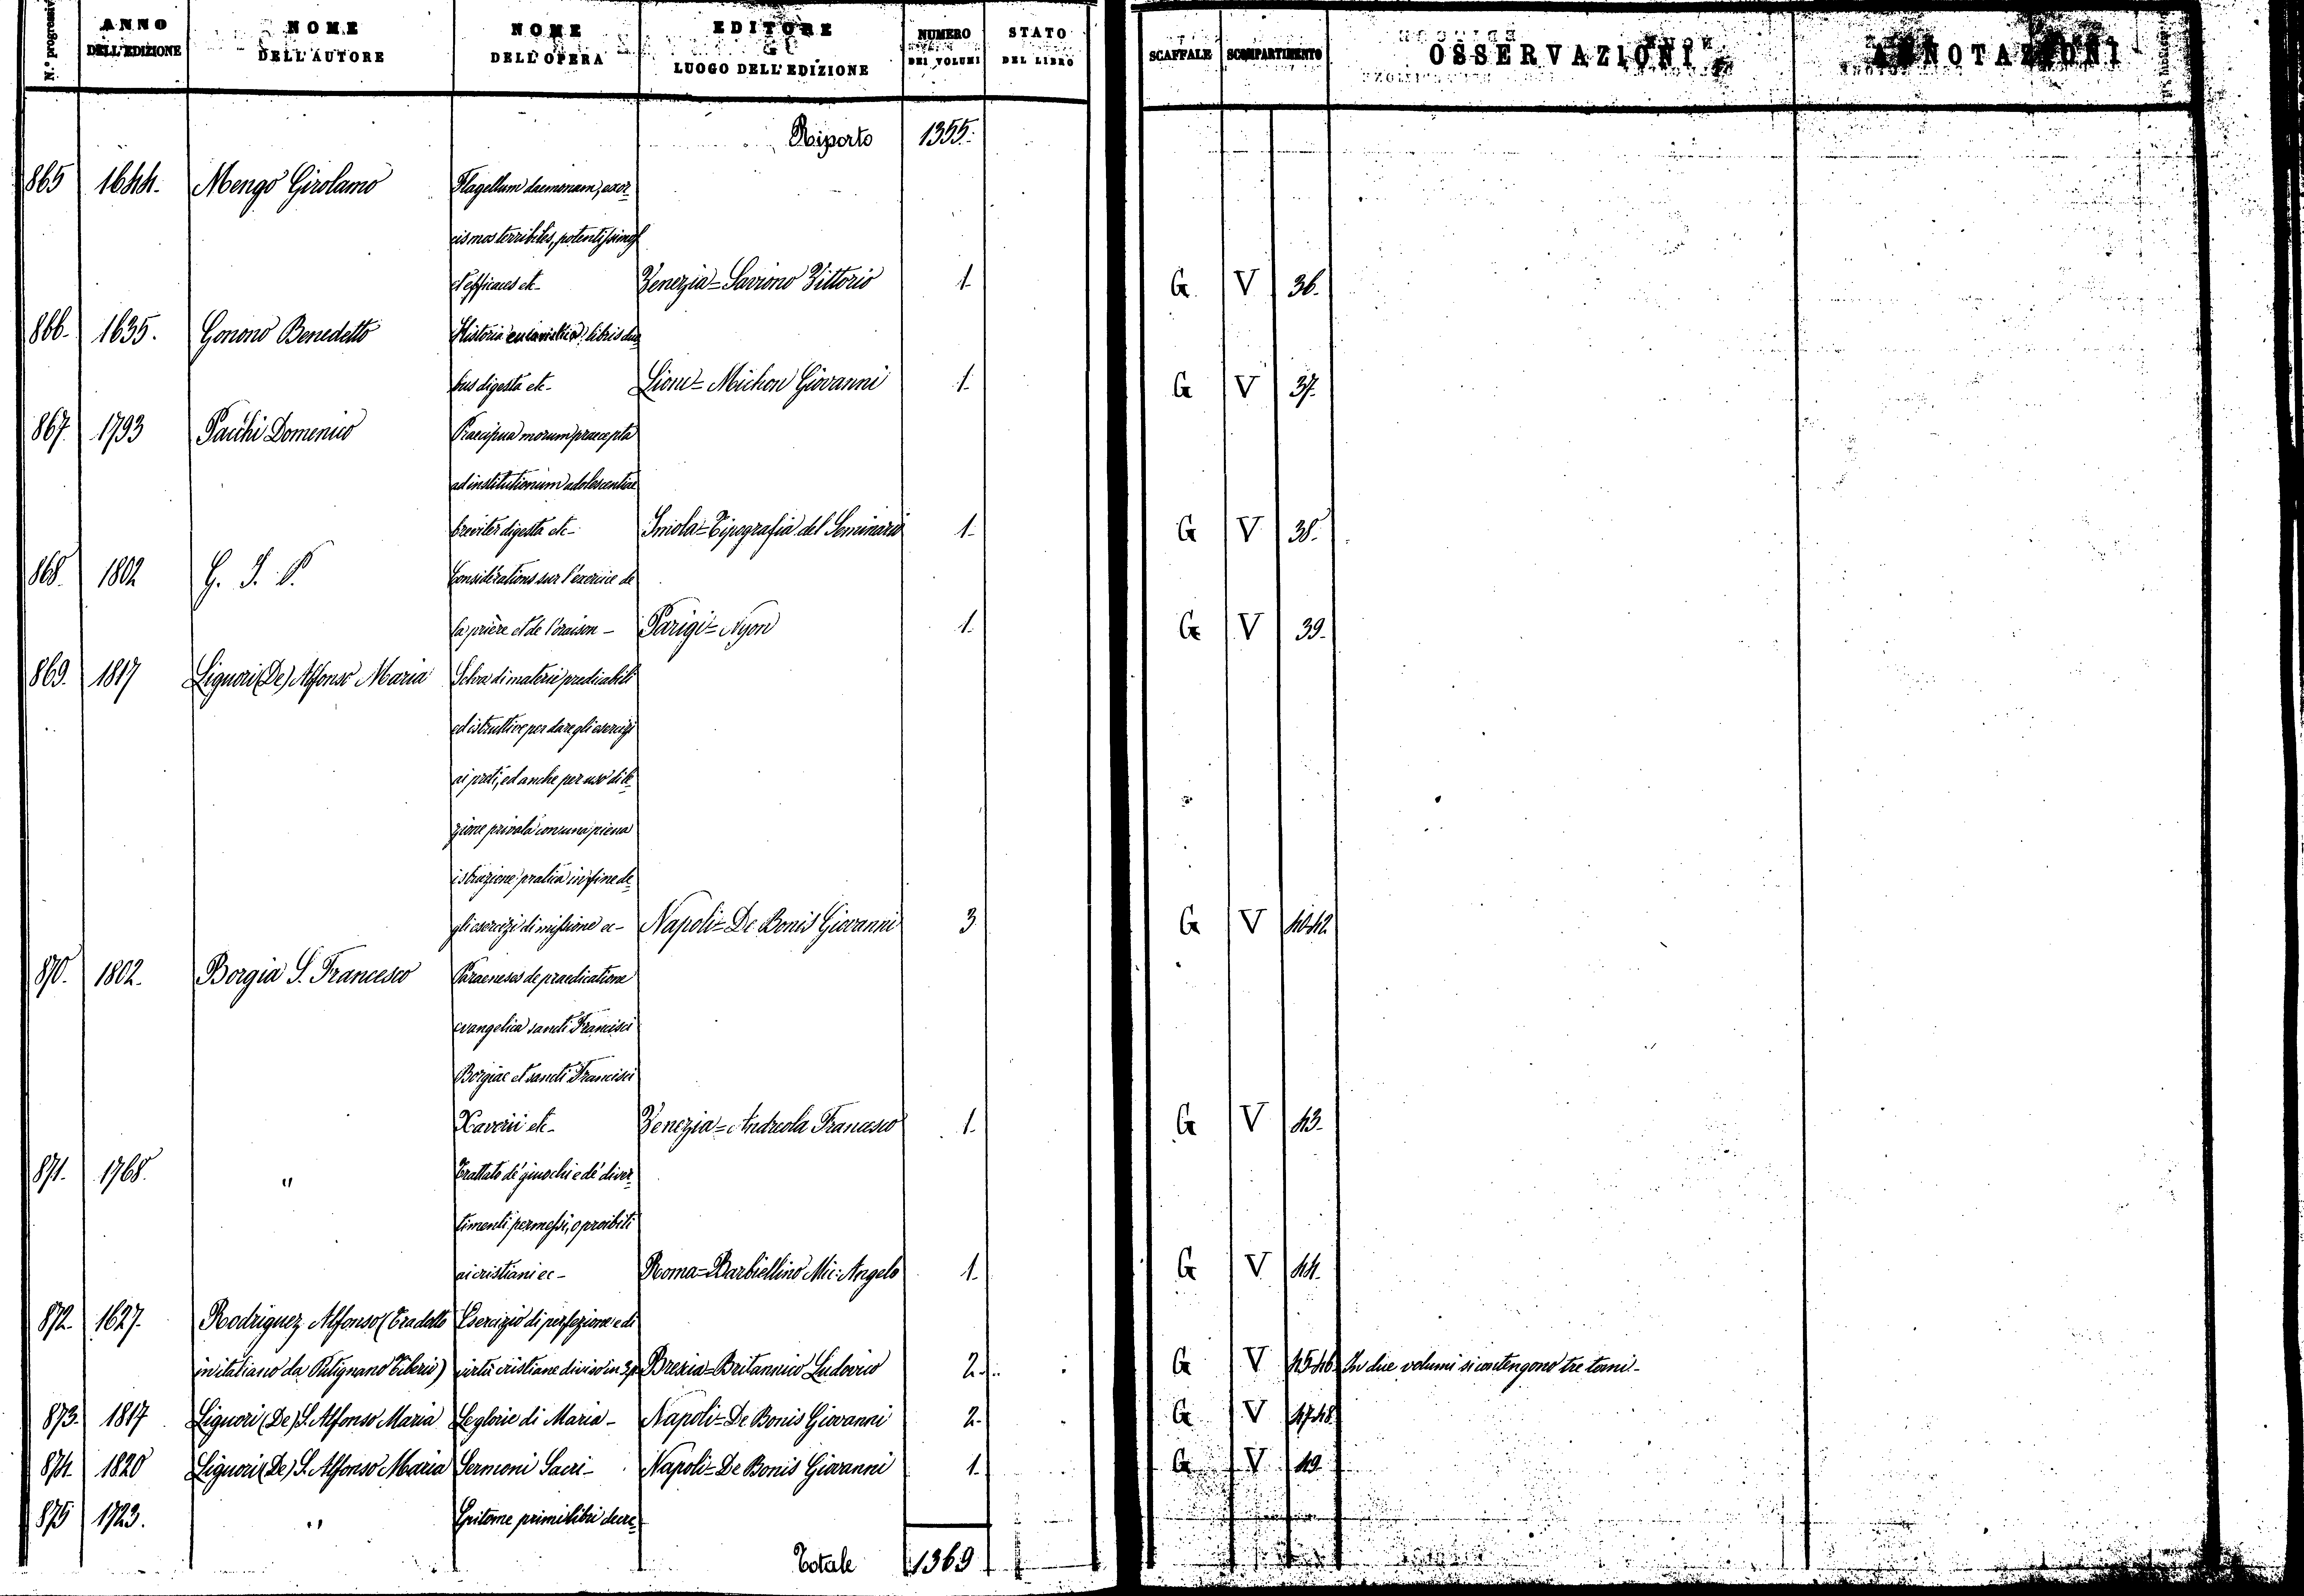 N.° progressivo ANNO DELL'EDIZIONE NOME DELL'AUTORE NOME DELL'OPERA EDITORE E LUOGO DELL'EDIZIONE NUMERO DEI VOLUMI STATO DEL LIBRO SCAFFALE SCOMPARTIMENTO OSSERVAZIONI ANNOTAZIONI
Riporto 1355.
865 1644. Mengo Girolamo Flagellum daemonum, exor-
cismos terribiles, potentissimos
et efficaces etc- Venezia= Saviono Vittorio 1. G V 36.
866. 1635. Gonono Benedetto Historia eucaristica libris duo-
bus digesta etc- Lione= Michon Giovanni 1. G V 37.
867. 1793 Pacchi Domenico Praecipua morum praecepta
ad institutionum adolescentiae
breviter digesta etc- Imola= Tipografia del Seminario 1. G V 38.
868. 1802 G. J. P. Considérations sur l'exercice de
la prière et de l'oraison- Parigi= Nyon 1. G V 39.
869. 1817 Liguori (De) Alfonso Maria Selva di materie predicabili
ed istruttive per dare gli esercizi
ai preti, ed anche per uso di le-
zione privata con una piena
istruzione pratica in fine de-
gli esercizi di missione ec- Napoli= De Bonis Giovanni 3 G V 40-42
870. 1802. Borgia S. Francesco Paraeneses de praedicatione
evangelica sancti Francisci
Borgiae et sancti Francisci
Xaverii etc- Venezia= Andreola Francesco 1. G V 43.
871. 1768. " Trattato de' giuochi e de' diver-
timenti permessi, o proibiti
ai cristiani ec- Roma= Barbiellino Mic: Angelo 1. G V 44.
872. 1627. Rodriguez Alfonso (Tradotto Esercizio di perfezione e di
in italiano da Putignano Tiberio) virtù cristiane diviso in 3 p. Brescia= Britannico Ludovico 2. G V 45-46. In due volumi si contengono tre tomi-
873. 1817 Liguori (De) S. Alfonso Maria Le glorie di Maria- Napoli= De Bonis Giovanni 2. G V 47-48.
874. 1820 Liguori (De) S. Alfonso Maria Sermoni Sacri- Napoli= De Bonis Giovanni 1. G V 49.
875 1723. " Epitome primi libri decre-
Totale 1369